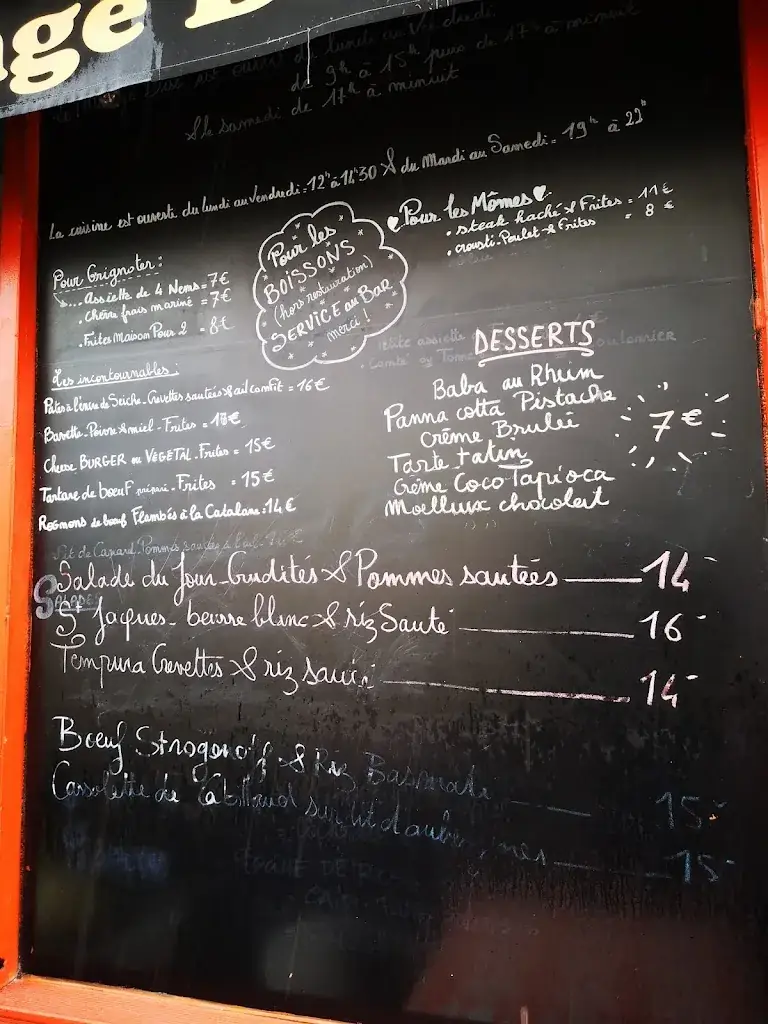 age
lundi au Vendredi
de 9h à 15h puis de 17h à minuit
& le samedi de 17h à minuit
La cuisine est ouverte du lundi au Vendredi = 12h à 14h30 & du Mardi au Samedi = 19h à 22h
Pour Grignoter :
... Assiette de 4 Nems = 7€
. Chèvre frais mariné = 7€
. Frites Maison Pour 2 = 8€
Pour les
BOISSONS
(hors restauration)
SERVICE au BAR
merci !
Pour les Mômes
. steak haché & Frites = 11€
. crousti-Poulet & Frites = 8 €
Les incontournables :
Pâtes à l'encre de Seiche - Crevettes sautées & ail confit = 16€
Bavette - Poivre & miel - Frites =
Cheese BURGER ou VEGETAL - Frites = 15€
Tartare de boeuf préparé - Frites = 15€
Rognons de boeuf Flambés à la Catalane = 14€
DESSERTS
Baba au Rhum
Panna cotta Pistache
Crème Brulée
Tarte tatin
Crème Coco Tapioca
Moelleux chocolat
7€
Salade du Jour - Crudités & Pommes sautées — 14-
SALADES
St Jaques - beurre blanc & riz Sauté — 16-
Tempura Crevettes & riz — 14-
Bœuf Strogonoff & Riz Basmati — 15-
Cassolette de Cabillaud sur lit d'aubergines — 15-